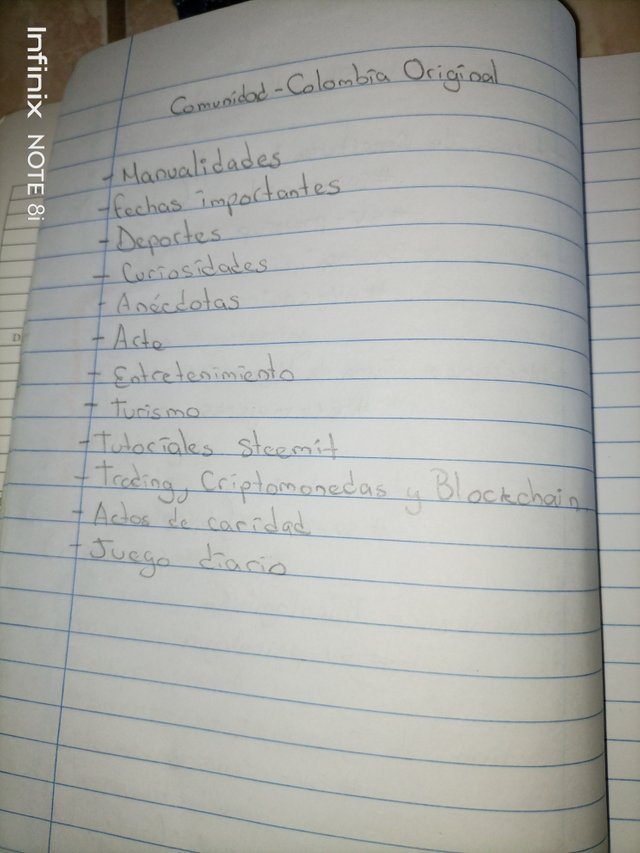 Infinix NOTE 8i
Comunidad - Colombia Original
- Manualidades
- fechas importantes
- Deportes
- Curiosidades
- Anécdotas
- Arte
- Entretenimiento
- Turismo
- Tutoriales Steemit
- Trading, Criptomonedas y Blockchain
- Actos de caridad
- Juego diario